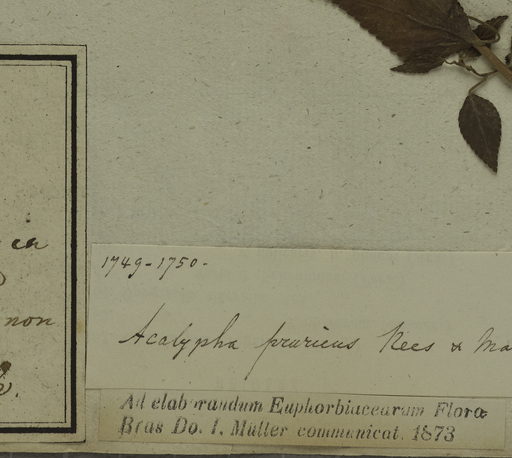 en
non
1749-1750.
Acalypha pruriens Nees & Ma
Ad elaborandum Euphorbiacearum Floræ
Bras Do. I. Müller communicat. 1873